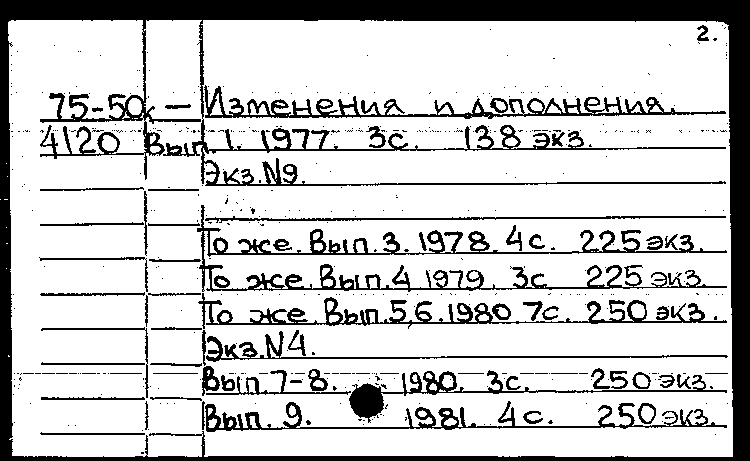 2.
75-50к — Изменения и дополнения.
4120 Вып.1. 1977. 3с. 138 экз.
Экз.N9.
То же. Вып.3. 1978. 4с. 225 экз.
То же. Вып.4 1979. 3с 225 экз.
То же. Вып.5,6. 1980. 7с. 250 экз.
Экз.N4.
Вып. 7-8. 1980. 3с. 250 экз.
Вып. 9. 1981. 4с. 250 экз.